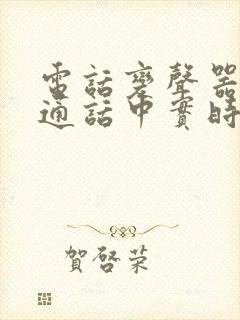 電話變聲器
通話中實時
賀啓荣